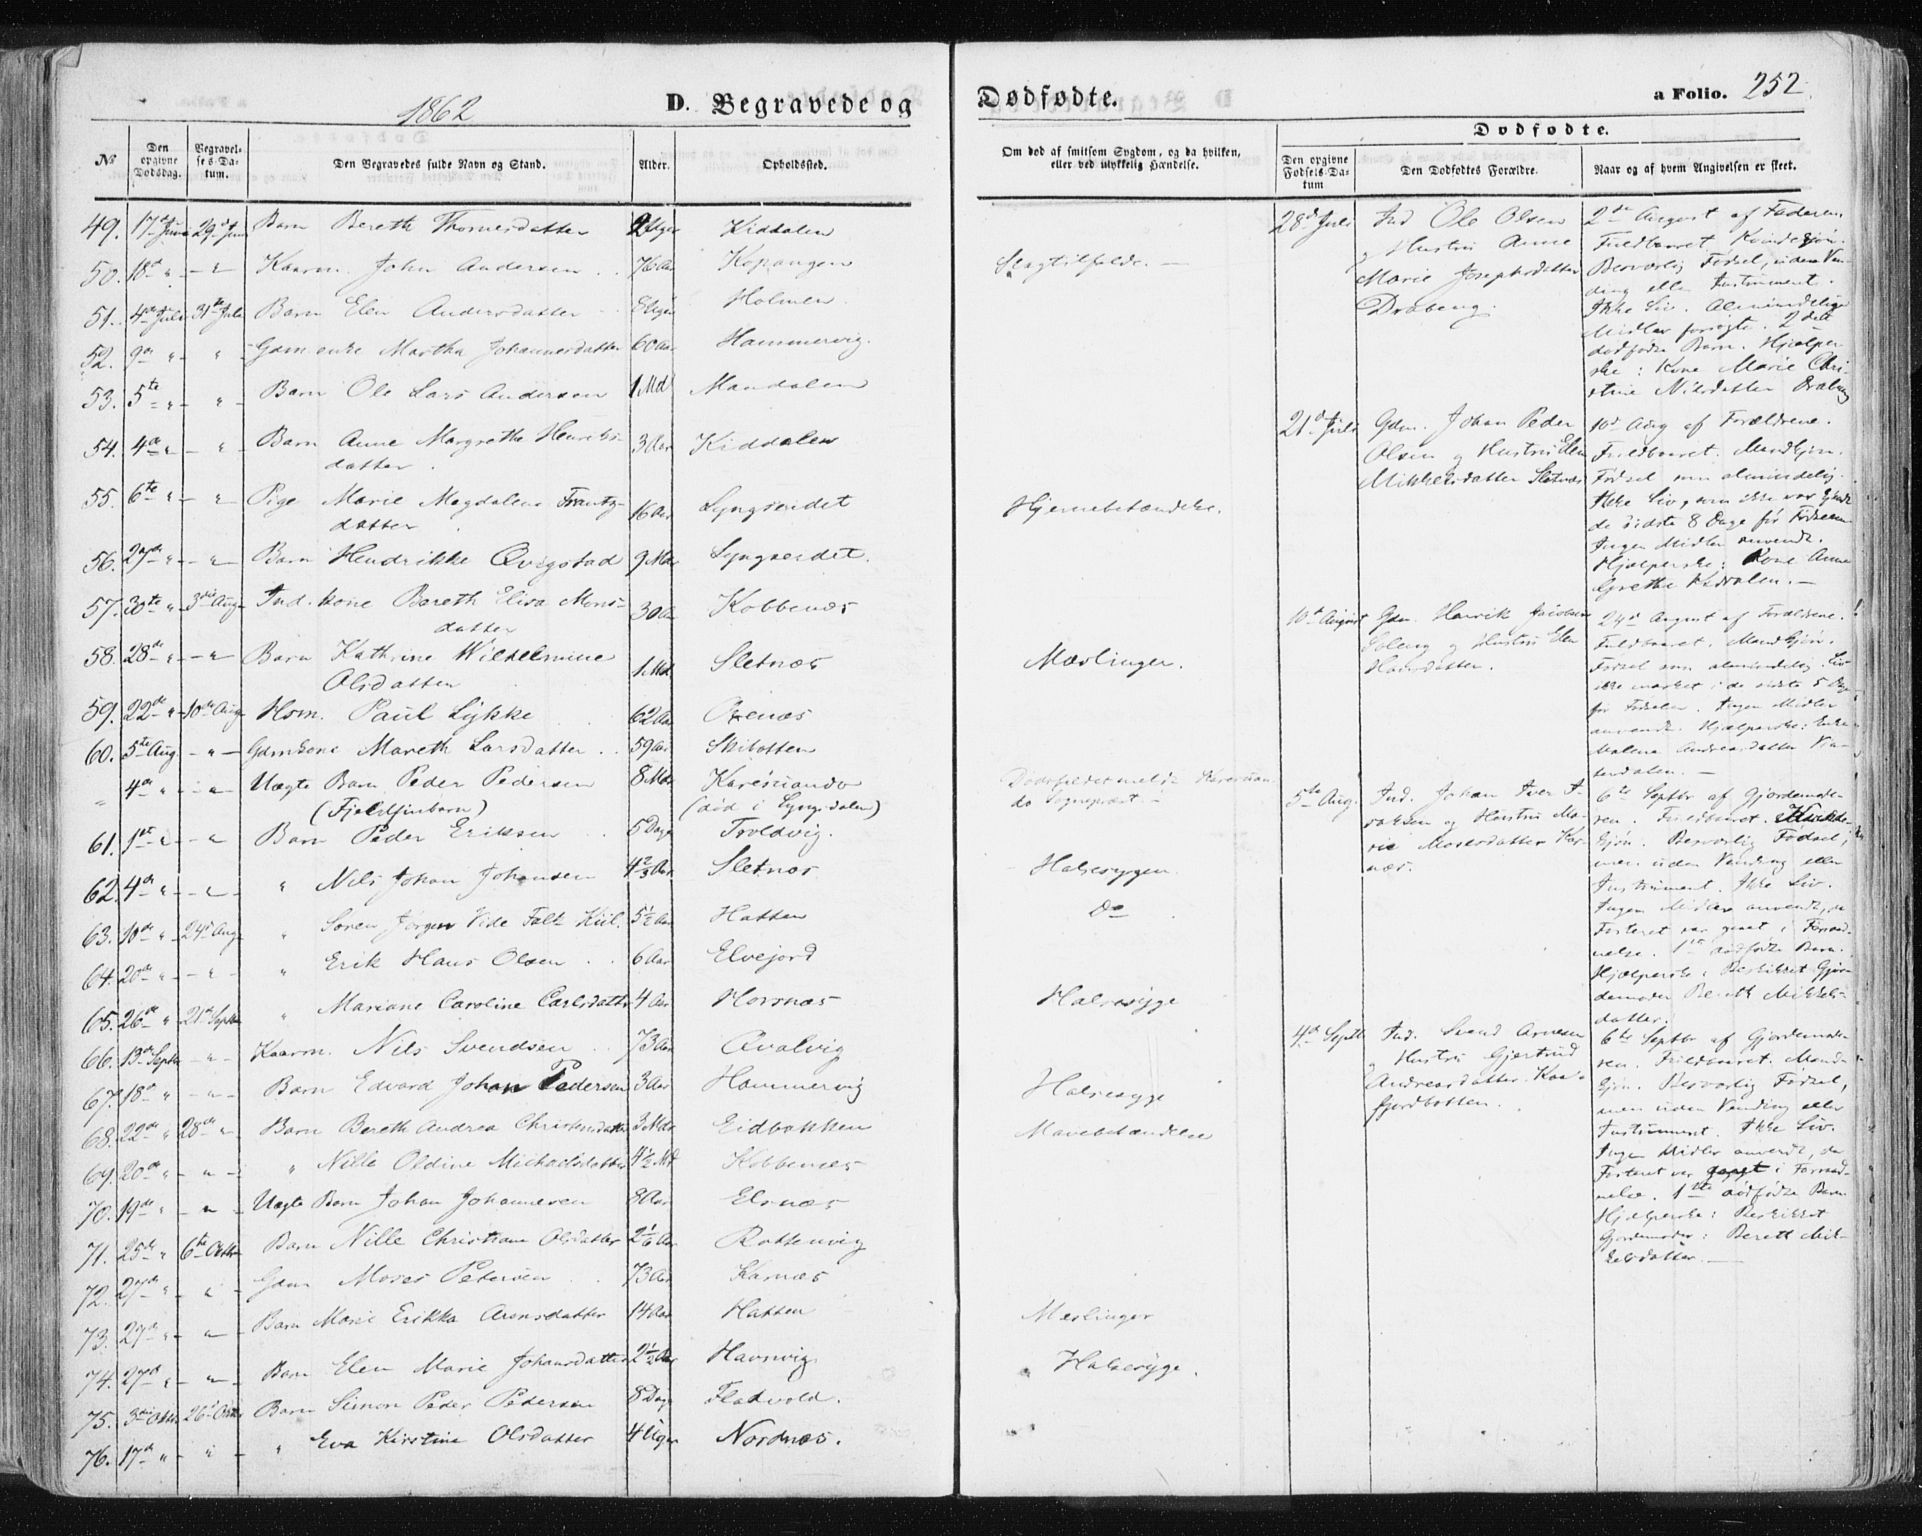 1862
D. Begravede og Dødfødte.
a Folio. 252.
Dødfødte.
No
Den opgivne Dødsdag.
Begravelses-Datum.
Den Begravedes fulde Navn og Stand.
Alder.
Opholdssted.
Om død af smitsom Sygdom, og da hvilken, eller ved ulykkelig Hændelse.
Den opgivne Fødsels-Datum
Den Dødfødtes Forældre.
Naar og af hvem Angivelsen er skeet.
49. 17de Juni 29de Juni Barn Bereth Thomesdatter 2 Uger Kiddalen
50. 18de " - " - Kaarm. John Andersen 76 Aar Kopangen Slagtilfælde. -
51. 4de Juli 31te Juli Barn Elen Andersdatter 8 Uger Holmen
52. 9de " " Gdm enke Martha Johannesdatter 60 Aar Hammervig.
53. 5te " " Barn Ole Lars Andersen 1 Md Mandalen
54. 4de " " Barn Anne Margrethe Henriks-
datter. 3 Aar Kiddalen
55. 6te " " Pige Marie Magdalena Frantz-
datter 16 Aar Lyngseidet Hjernebetændelse.
56. 29de " - " - Barn Hendrikke Qvigstad 9 Mdr Lyngseidet.
57. 30te " 3die Aug Ind. kone Bereth Elisa Mons-
datter 30 Aar Kobbenæs
58. 28de " - " - Barn Kathrine Wilhelmine
Olsdatter 1 Md Sletnæs Mæslinger.
59. 22de " 10de Aug Hsm. Paul Lykke 62 Aar Oxenæs
60. 5te Aug. - " - Gdmkone Mareth Larsdatter 59 Aar Skibotten
" 4de " - " - Uægte Barn Peder Pedersen 8 Mdr Karesuando
(Fjeldfinbarn) (død i Lyngsdalen)
61. 1st " - " Barn Peder Eriksen 5 Dage Troldvig.
62. 4de " - " - " Nils Johan Johansen 4 2/3 Aar Sletnæs Halssygen.
63. 10de " 24de Aug " Søren Jørgen Vide Falk Kiil. 5 1/2 Aar Hatten Do
64. 20de " - " - " Erik Hans Olsen 6 Aar Elvejord
65. 26de " 21de Septbr " Mariane Caroline Carlsdatter 4 Aar Horsnæs Halssyge
66. 13de Septbr - " - Kaarm. Nils Svendsen 73 Aar Qvalvig
67. 18de " - " - Barn Edvard Johan Pedersen 3 Aar Hammervig Halssyge
68. 22de " 28de " Barn Bereth Andrea Christensdatter 3 Mdr Eidbakken Mavebetændelse
69. 20de " - " - " Nille Oldine Michaelsdatter 4 1/2 Md Kobbenæs
70. 19de " - " - Uægte Barn Johan Johannesen 8 Aar Elsnæs
71. 25de " 6te Octbr Barn Nille Christiane Olsdatter 2 1/6 Aar Rottenvig
72. 27de " " Gdm Moses Petersen 73 Aar Karnæs
73. 27de " - " Barn Marie Erikka Aronsdatter 14 Aar Hatten Mæslinger
74. 27de " - " - Barn Elen Marie Johansdatter 2 1/2 Aar Havnvig Halssyge.
75. 3die Octbr 26de Octbr Barn Simon Peder Pedersen 8 Dage Fladvold.
76. 17de " " " Eva Kirstine Olsdatter 4 Uger Nordnæs.
28de Juli Ind Ole Olsen
og Hustru Anne
Marie Josephsdatter
2den August af Faderen
Fuldbaaret Kvindekjøn.
Besværlig Fødsel, uden Ven-
ding eller Instrument.
Ikke Liv. Almindelige
Midler forsøgte. 2det
dødfødte Barn. Hjælper-
ske: Kone Marie Chri-
stine Nilsdatter
21de Juli Gdm. Johan Peder
Olsen og Hustru Elen
Mikkelsdatter Sletnæs
10de Aug af Forældrene.
Fuldbaaret. Mandkjøn.
Fødsel som almindelig.
Ikke Liv, som ikke var kjendt
de sidste 8 Dage før Fødselen
Ingen Midler anvendt.
Hjælperske: Kone Anne
Grethe Kiddalen. -
10de August Gdm. Henrik Jacobsen
og Hustru Elen
Hansdatter.
24de August af Forældrene.
Fuldbaaret. Mandkjøn.
Fødsel som almindelig. Liv
ikke mærket i de sidste 5 Dage
før Fødselen. Ingen Midler
anvendt. Hjælperske: Enke
Malena Andreasdatter
5te Aug. Ind. Johan Iver
og Hustru Ma-
rie Mosesdatter Kar-
næs.
6te Septbr af Gjordemode-
ren. Fuldbaaret. Kvinde-
kjøn. Besværlig Fødsel,
men uden Vending eller
Instrument. Ikke Liv.
Ingen Midler anvendt, da
Fosteret var gaaet i Forraad-
nelse. 1ste dødfødte Barn.
Hjælperske: Beskikket Gjor-
demoder Bereth Mikkels-
datter.
4de Septbr Ind. Svend Arnesen
og Hustru Gjertrud
Andreasdatter Kaa-
fjordbotten.
6te Septbr af Gjordemode-
ren. Fuldbaaret. Mand-
kjøn. Besværlig Fødsel,
men uden Vending eller
Instrument. Ikke Liv.
Ingen Midler anvendt, da
Fosteret var gaaet i Forraad-
nelse. 1ste dødfødte Barn
Hjælperske: Beskikket
Gjordemoder: Berett Mik-
kelsdatter. -